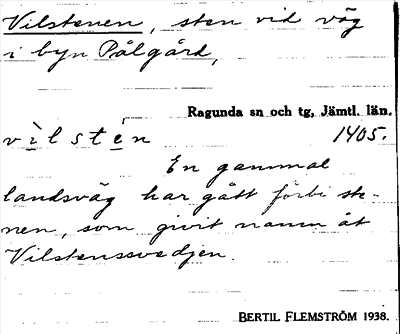 Vilstenen, sten vid väg
i byn Pålgård,
Ragunda sn och tg, Jämtl. län.
vìlstén 1405.
En gammal
landsväg har gått förbi ste-
nen, som givit namn åt
Vilstenssvedjen.
BERTIL FLEMSTRÖM 1938.